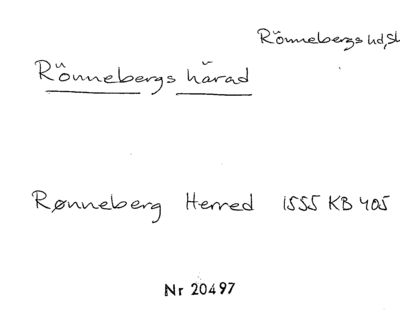 Rönnebergs hd, Sk
Rönnebergs härad
Rønneberg Herred 1555 KB 405
Nr 20497